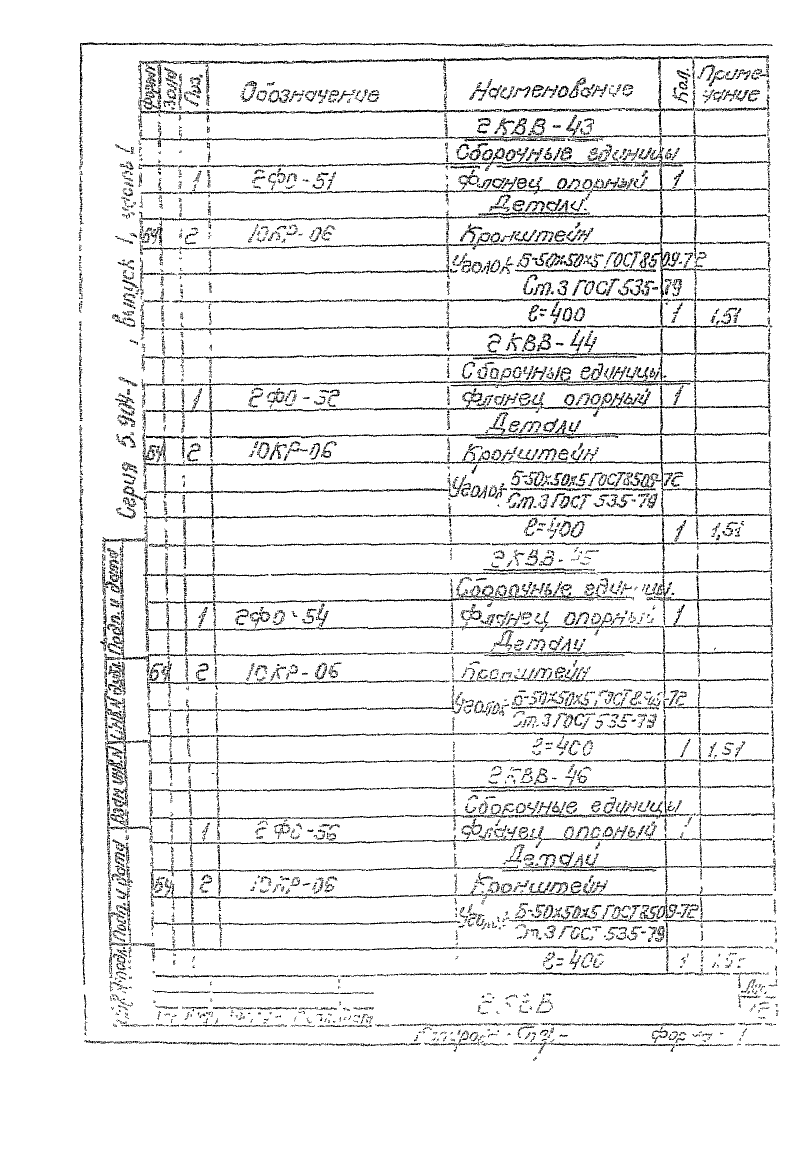 Серия 5.904-1 , выпуск 1, часть 1
Формат Зона Поз. Обозначение Наименование Кол. Приме-
чание
2КВВ-43
Сборочные единицы
1 2ФО-51 Фланец опорный 1
Детали
БЧ 2 10КР-06 Кронштейн
Уголок Б-50х50х5 ГОСТ 8509-72
Ст.3 ГОСТ 535-79
ℓ=400 1 1,51
2КВВ-44
Сборочные единицы.
1 2ФО-52 Фланец опорный 1
Детали
БЧ 2 10КР-06 Кронштейн
Уголок Б-50х50х5 ГОСТ 8509-72
Ст.3 ГОСТ 535-79
ℓ=400 1 1,51
2КВВ-45
Сборочные единицы.
1 2ФО-54 Фланец опорный 1
Детали
БЧ 2 10КР-06 Кронштейн
Уголок Б-50х50х5 ГОСТ
Ст.3 ГОСТ 535-79
ℓ=400 1 1,51
2КВВ-46
Сборочные единицы
1 2ФО-56 Фланец опорный 1
Детали
БЧ 2 10КР-06 Кронштейн
Уголок Б-50х50х5 ГОСТ 8509-72
Ст.3 ГОСТ 535-79
ℓ=400 1
2КВВ
Подп. и дата
Взам. инв. N
Подп. и дата